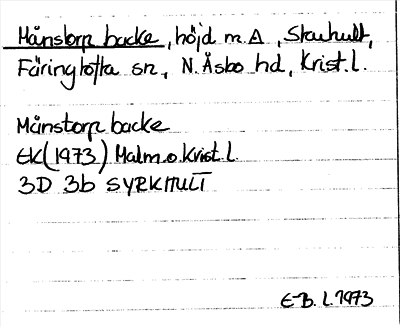 Månstorp backe, höjd m.Δ, Skuhult,
Färingtofta sn, N.Åsbo hd, Krist.l.
Månstorp backe
EK(1973) Malm.o.Krist.l.
3D 3b SYRKHULT
E.B. L.1973